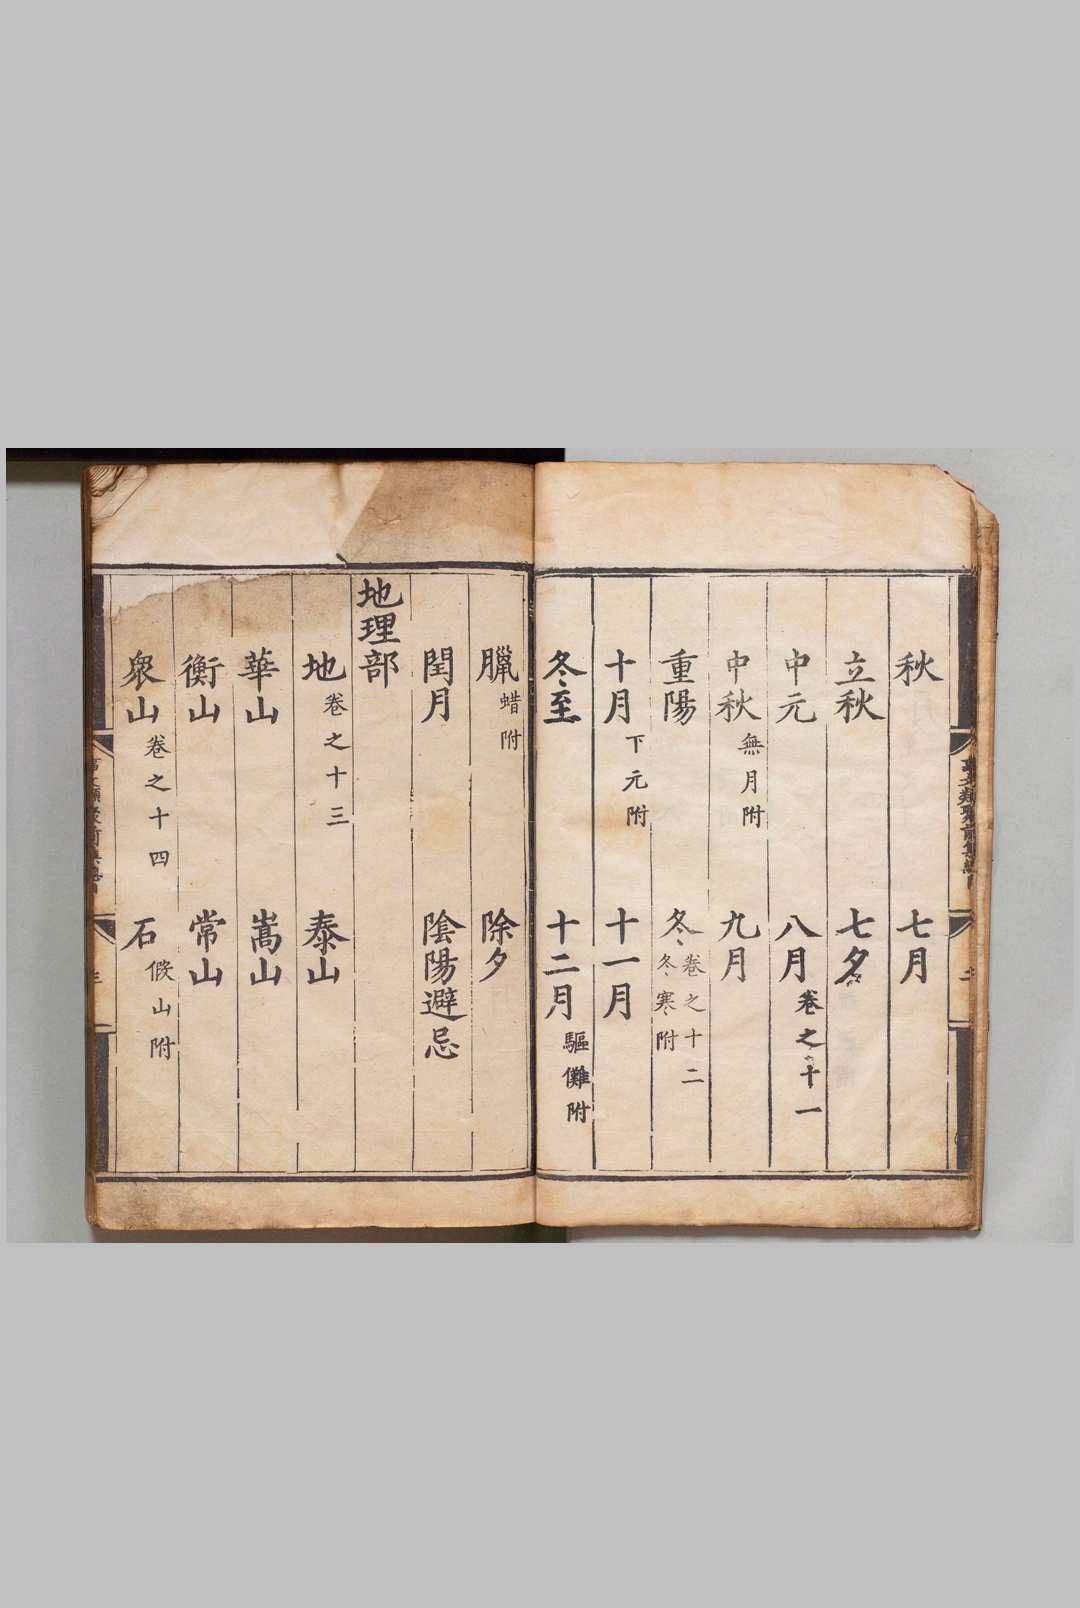 秋 七月
立秋 七夕
中元 八月 卷之十一
中秋 無月附 九月
重陽 冬 卷之十二 冬寒附
十月 下元附 十一月
冬至 十二月 驅儺附
臘 蜡附 除夕
閏月 陰陽避忌
地理部
地 卷之十三 泰山
華山 嵩山
衡山 常山
衆山 卷之十四 石 假山附